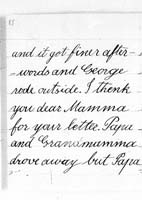 and it got finer after-
words and George
rode outside. I thank
you dear Mamma
for your letter. Papa
and Grandmamma
drove away but Papa